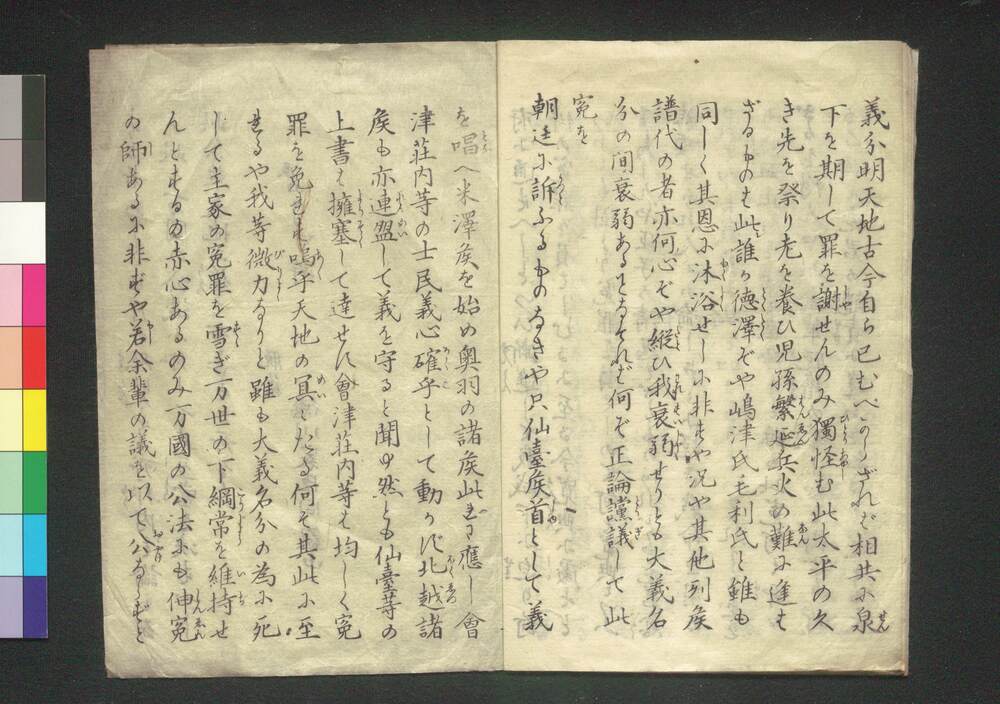 義分明天地古今自ら已むべからざれば相共に泉
下を期して罪を謝せんのみ獨怪む此太平の久
き先を祭り老を養ひ児孫繁延兵火の難に逢も
ざるものも此誰か徳澤ぞや嶋津氏毛利氏と雖も
同しく其恩に沐浴せしに非ずや况や其他列矦
譜代の者亦何心ぞや縦ひ我衰弱せりとも大義名
分の间衰弱あることなきれば何ぞ正論讜議して此
冤を
朝廷に訴ふるものなきや只仙臺矦首として義
を唱へ米澤矦を始め奥羽の諸矦此に應し會
津荘内等の士民義心確乎として動かず北越諸
矦も亦連盟して義を守ると聞ゆ然とも仙臺等の
上書は擁塞して達せず會津荘内等は均しく冤
罪を免れず嗚呼天地の冥〻たる何そ其此に至
せるや我等微力なりと雖も大義名分の為に死
して主家の冤罪を雪ぎ万世の下綱常を維持せ
んとするの赤心あるのみ万國の公法にも伸冤
の師あるに非ずや若余輩の議を以て公ならずと